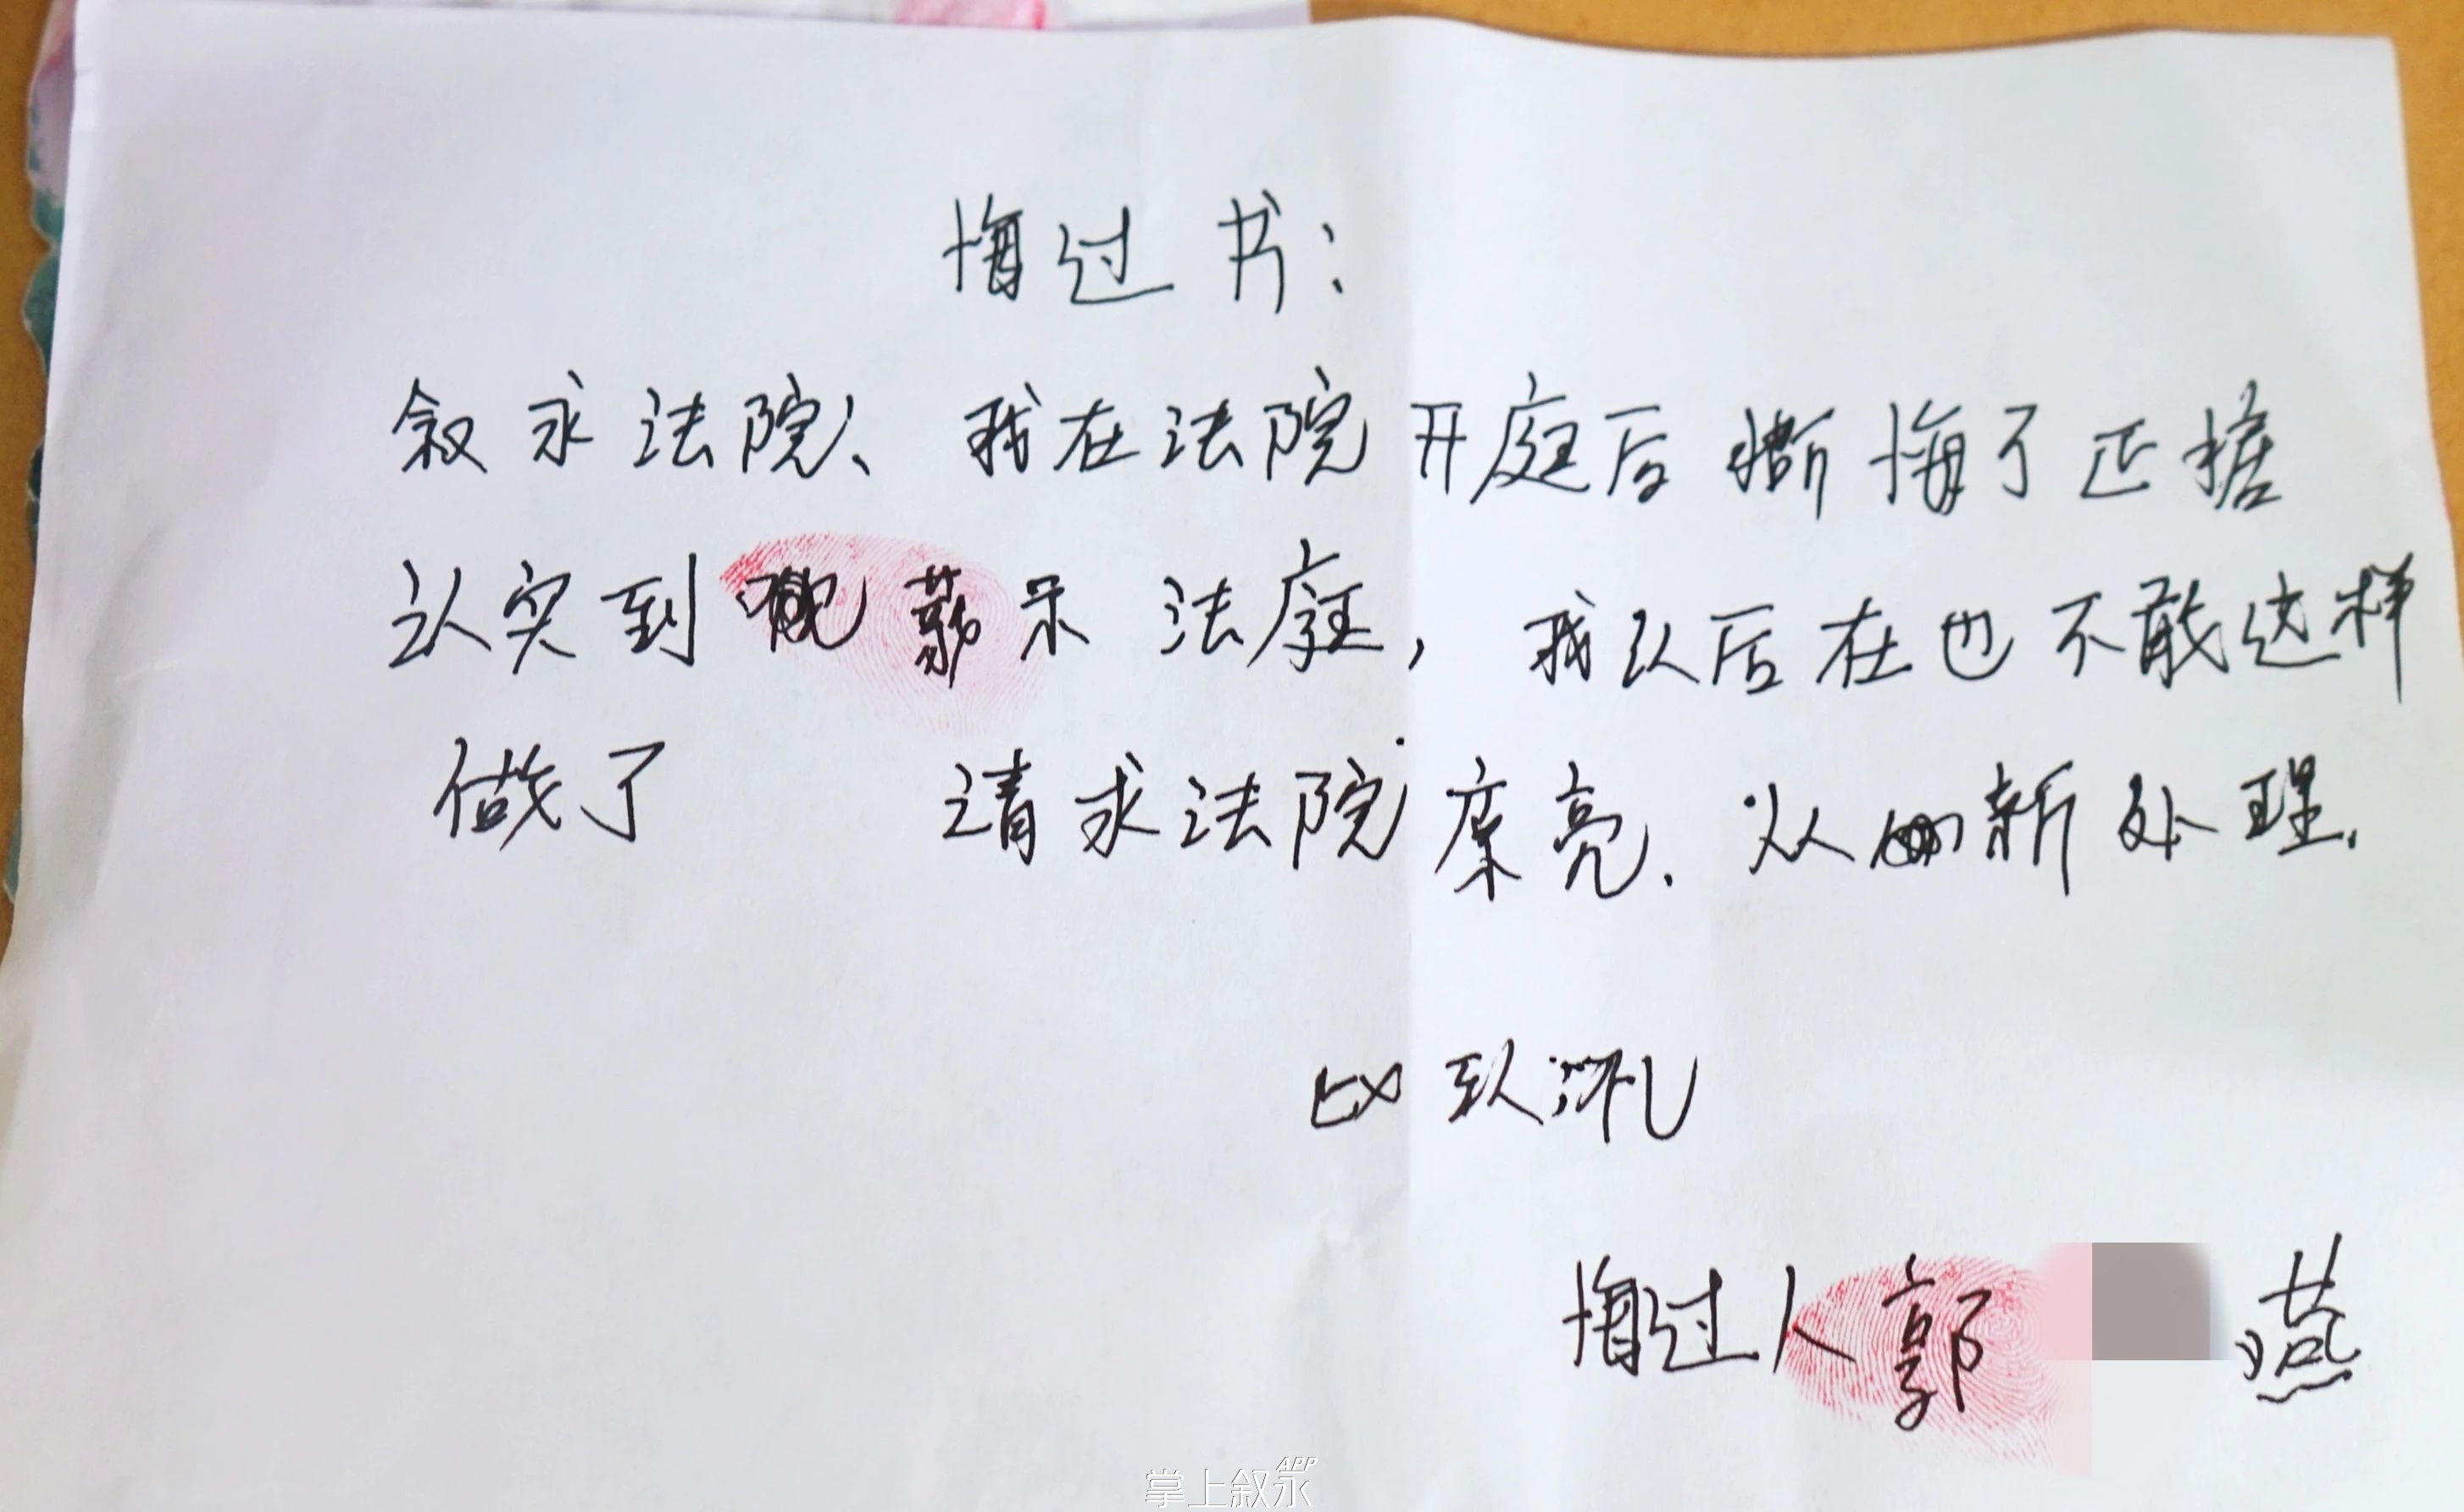 悔过书：
叙永法院、我在法院开庭后撕悔了正据
认实到 示法庭，我以后在也不敢这样
做了 请求法院 亮.从 新处理.
此致
悔过人郭 燕
掌上叙永APP